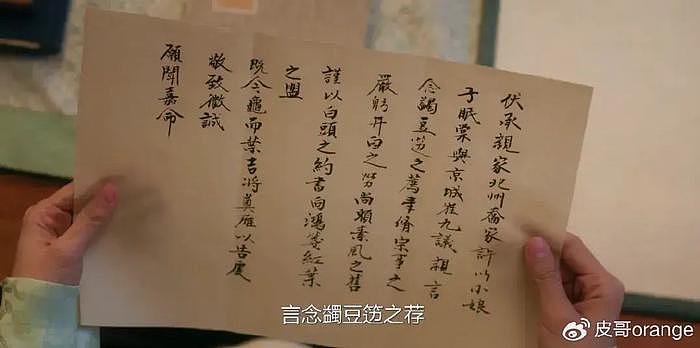 伏承親家北州喬家許以小娘
子眠棠與京城崔九議親言
念蠲豆籩之薦聿脩宗事之
嚴躬井臼之勞尚賴素風之舊
謹以白頭之約書向鴻箋紅葉
之盟
既令龜而葉吉將奠雁以告虔
敬致微誠
願聞嘉命
言念蠲豆笾之荐
皮哥orange